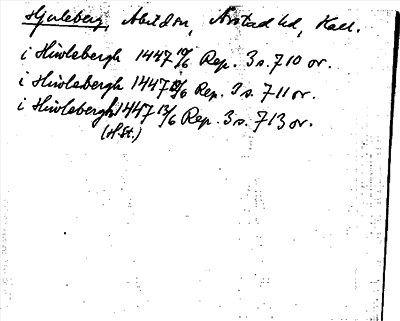 Hjuleberg, Abildsn, Årstad hd, Hall.
i Hiwlebergh 1447 19/6 Rep. 3 s. 710 or.
i Hiwlebergh 1447 Rep. 3 s. 711 or.
i Hiwlebergh 1447 13/6 Rep. 3 s. 713 or.
(H.St.)